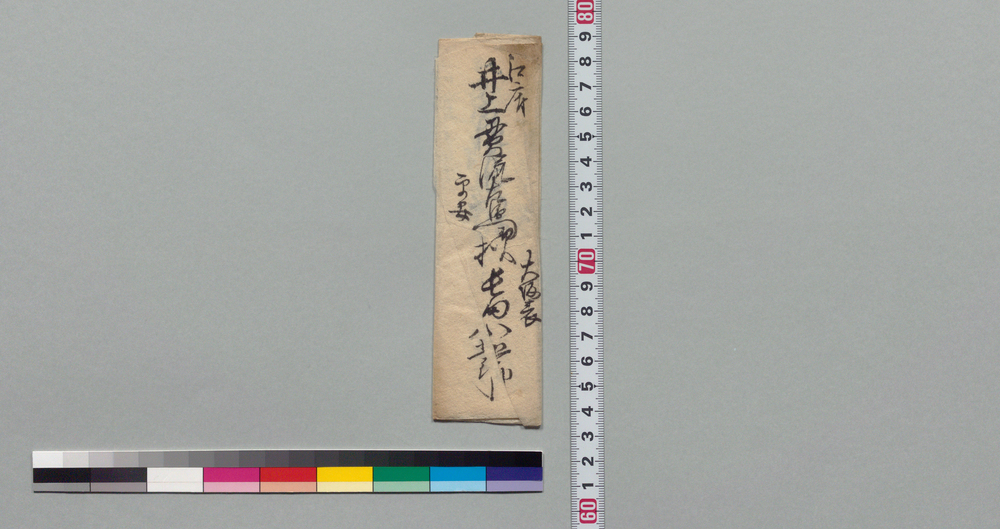 江府
井上貫流左衛門様
平安
大阪表
長田八百五郎
80
9
8
7
6
5
4
3
2
1
70
9
8
7
6
5
4
3
2
1
60